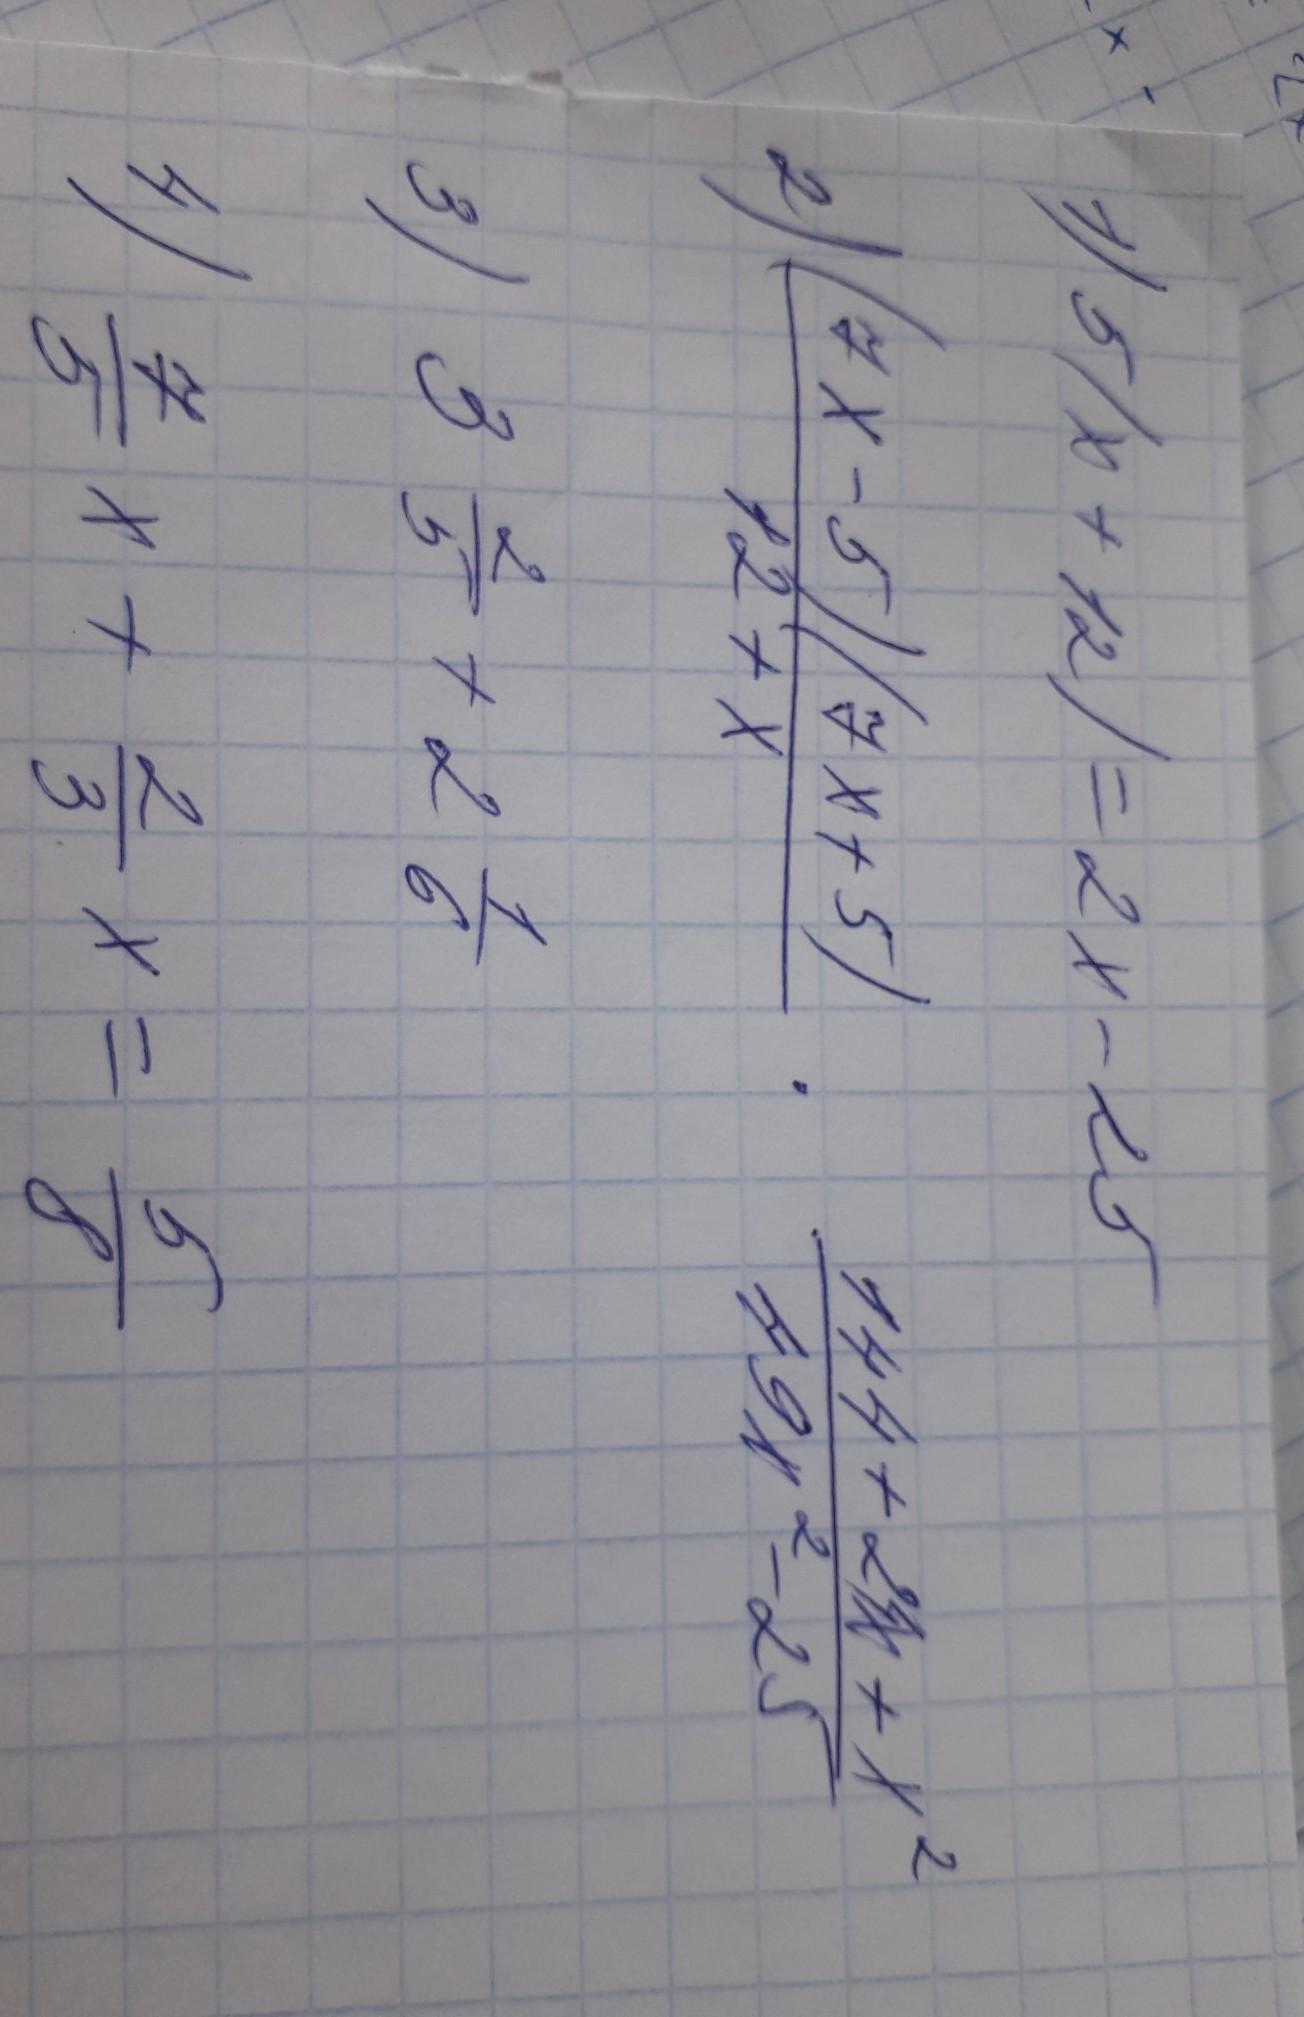 1) 5(x+12)=2x-25
2) (7x-5)(7x+5)/12+x · 144+24x+x²/49x²-25
3) 3 2/5 + 2 1/6
4) 7/5 x + 2/3 x = 5/8